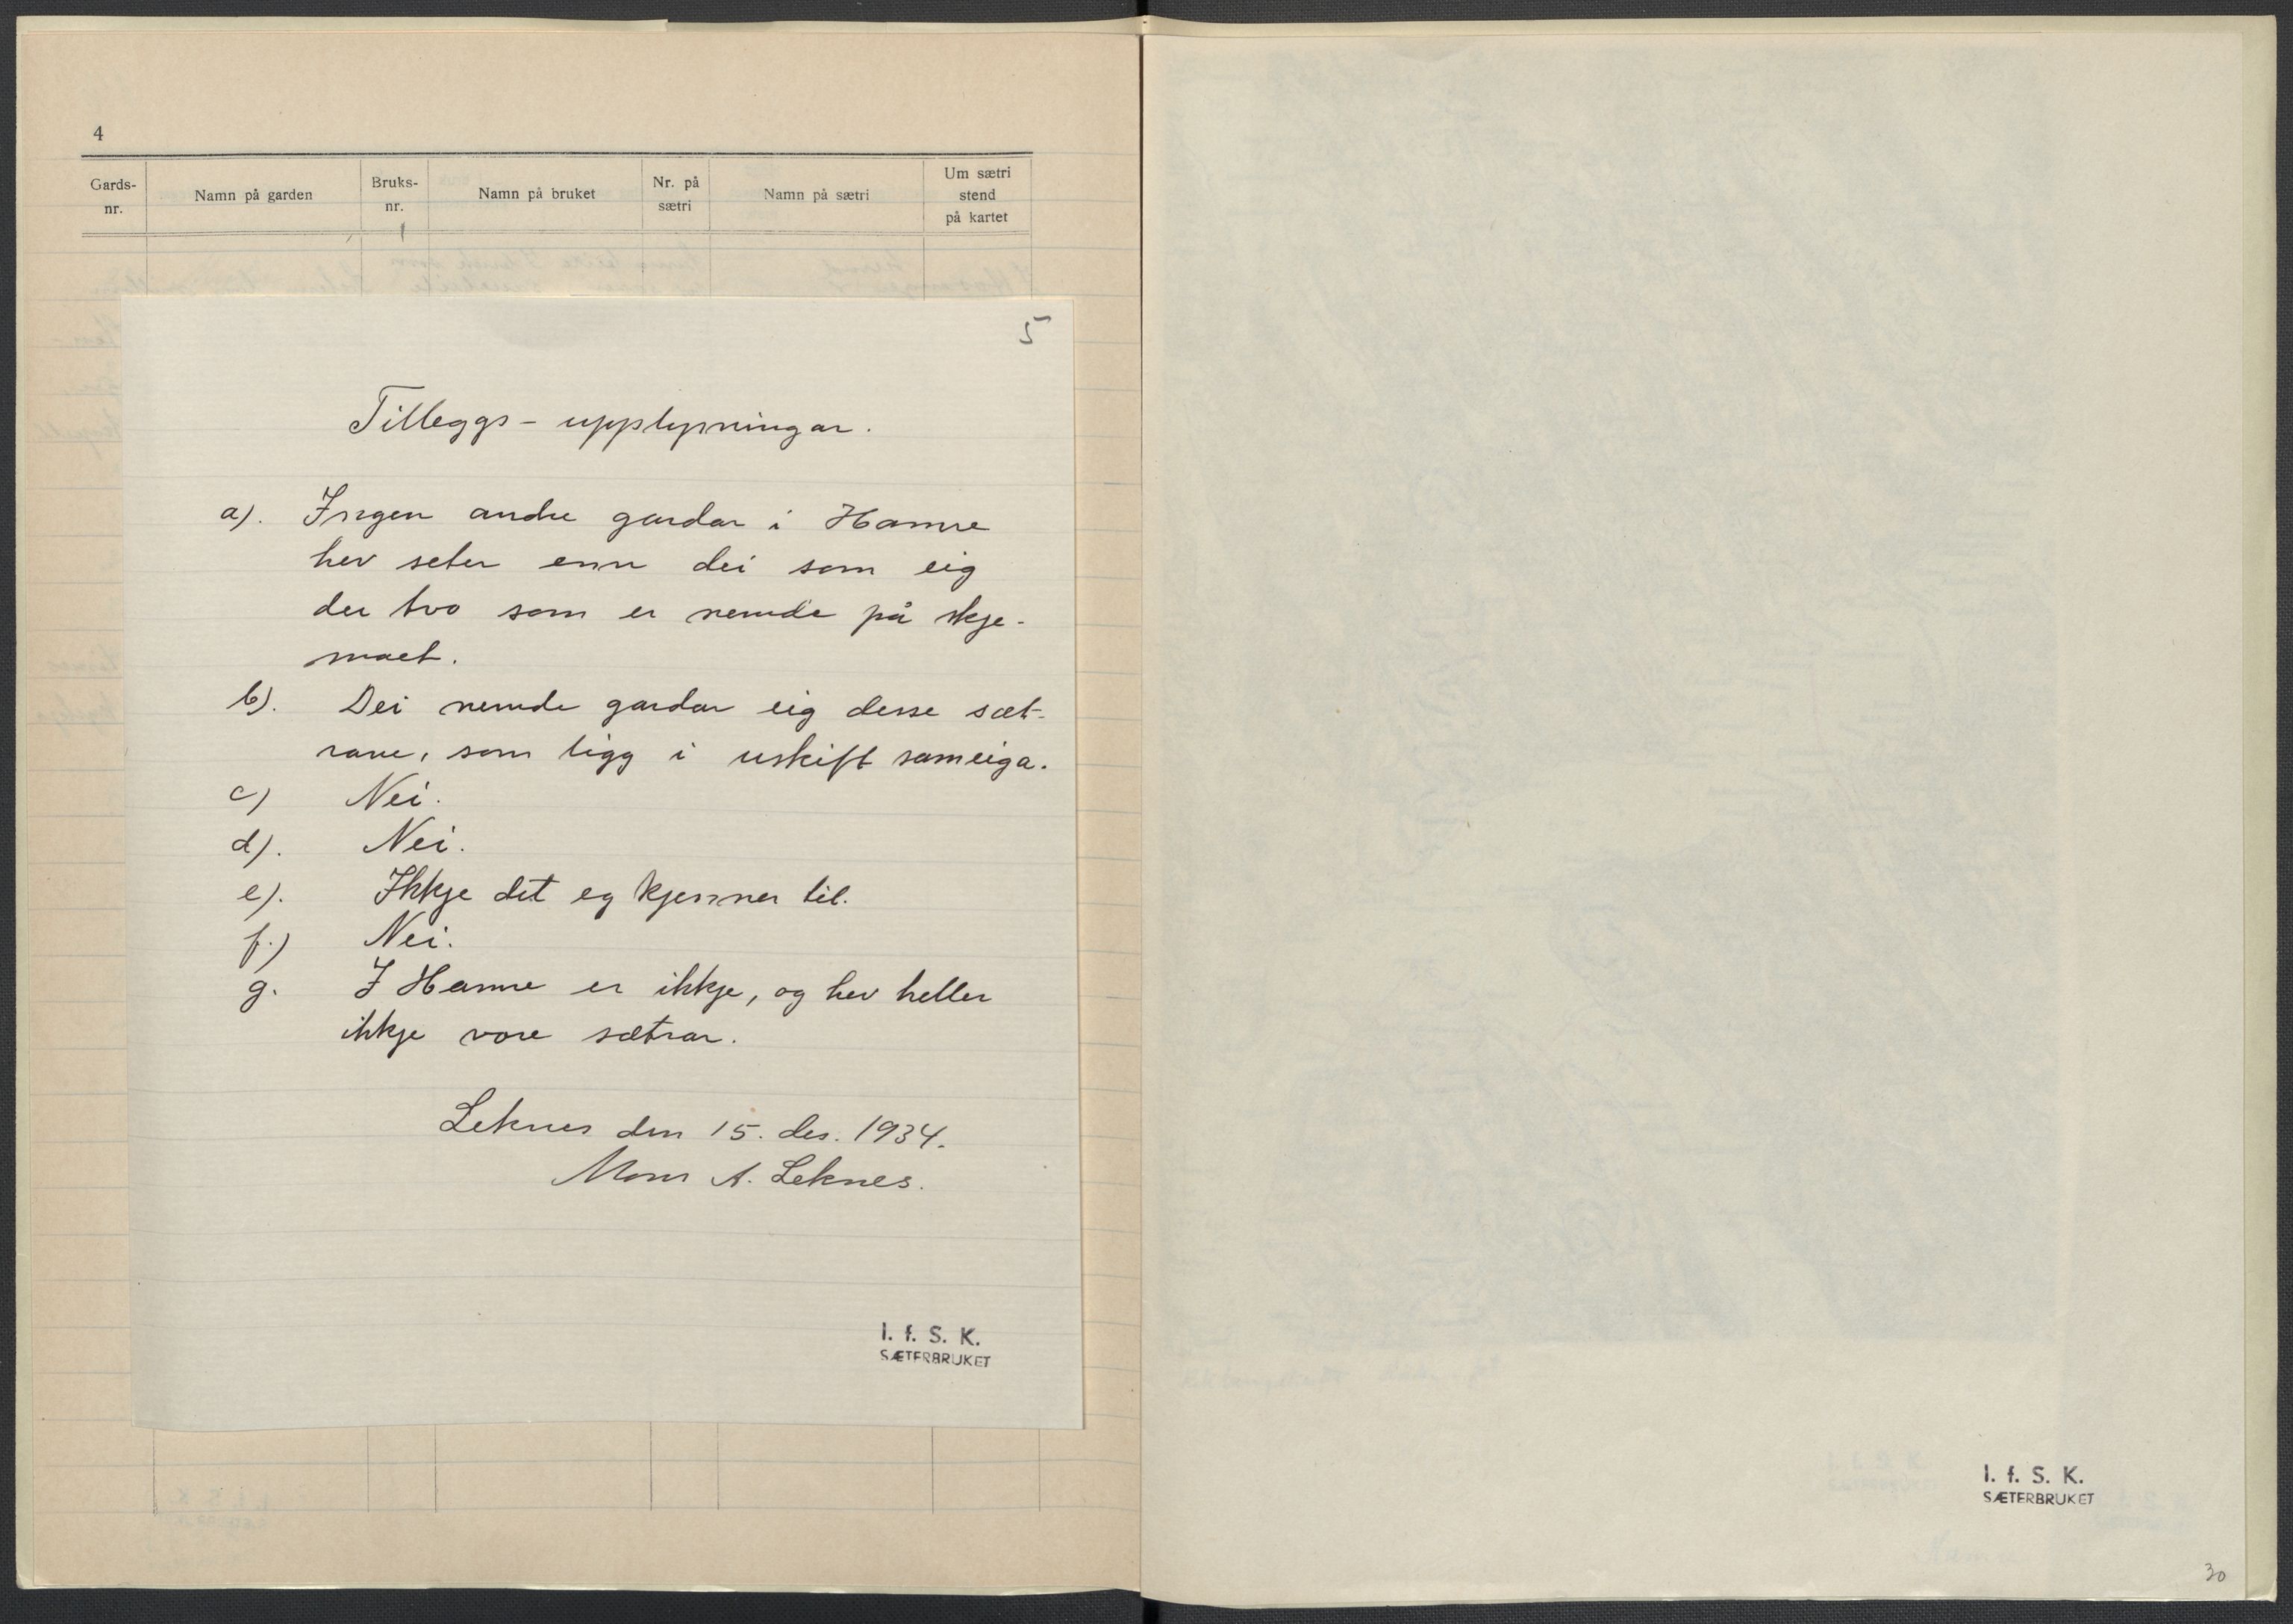 4
Gards-
nr.
Namn på garden
Bruks-
nr.
Namn på bruket
Nr. på
sætri
Namn på sætri
Um sætri
stend
på kartet
5
Tilleggs - upplysningar.
a). Ingen andre gardar i Hamre
hev seter enn dei som eig
dei tvo som er nemde på skje-
maet.
b). Dei nemde gardar eig desse sæt-
rane, som ligg i uskift sameiga.
c) Nei.
d). Nei.
e). Ikkje det eg kjenner til.
f.) Nei.
g. I Hamre er ikkje, og hev heller
ikkje vore sætrar.
Leknes den 15. des. 1934.
Mons A. Leknes.
I. f. S. K.
SÆTERBRUKET
I. f. S. K.
SÆTERBRUKET
30